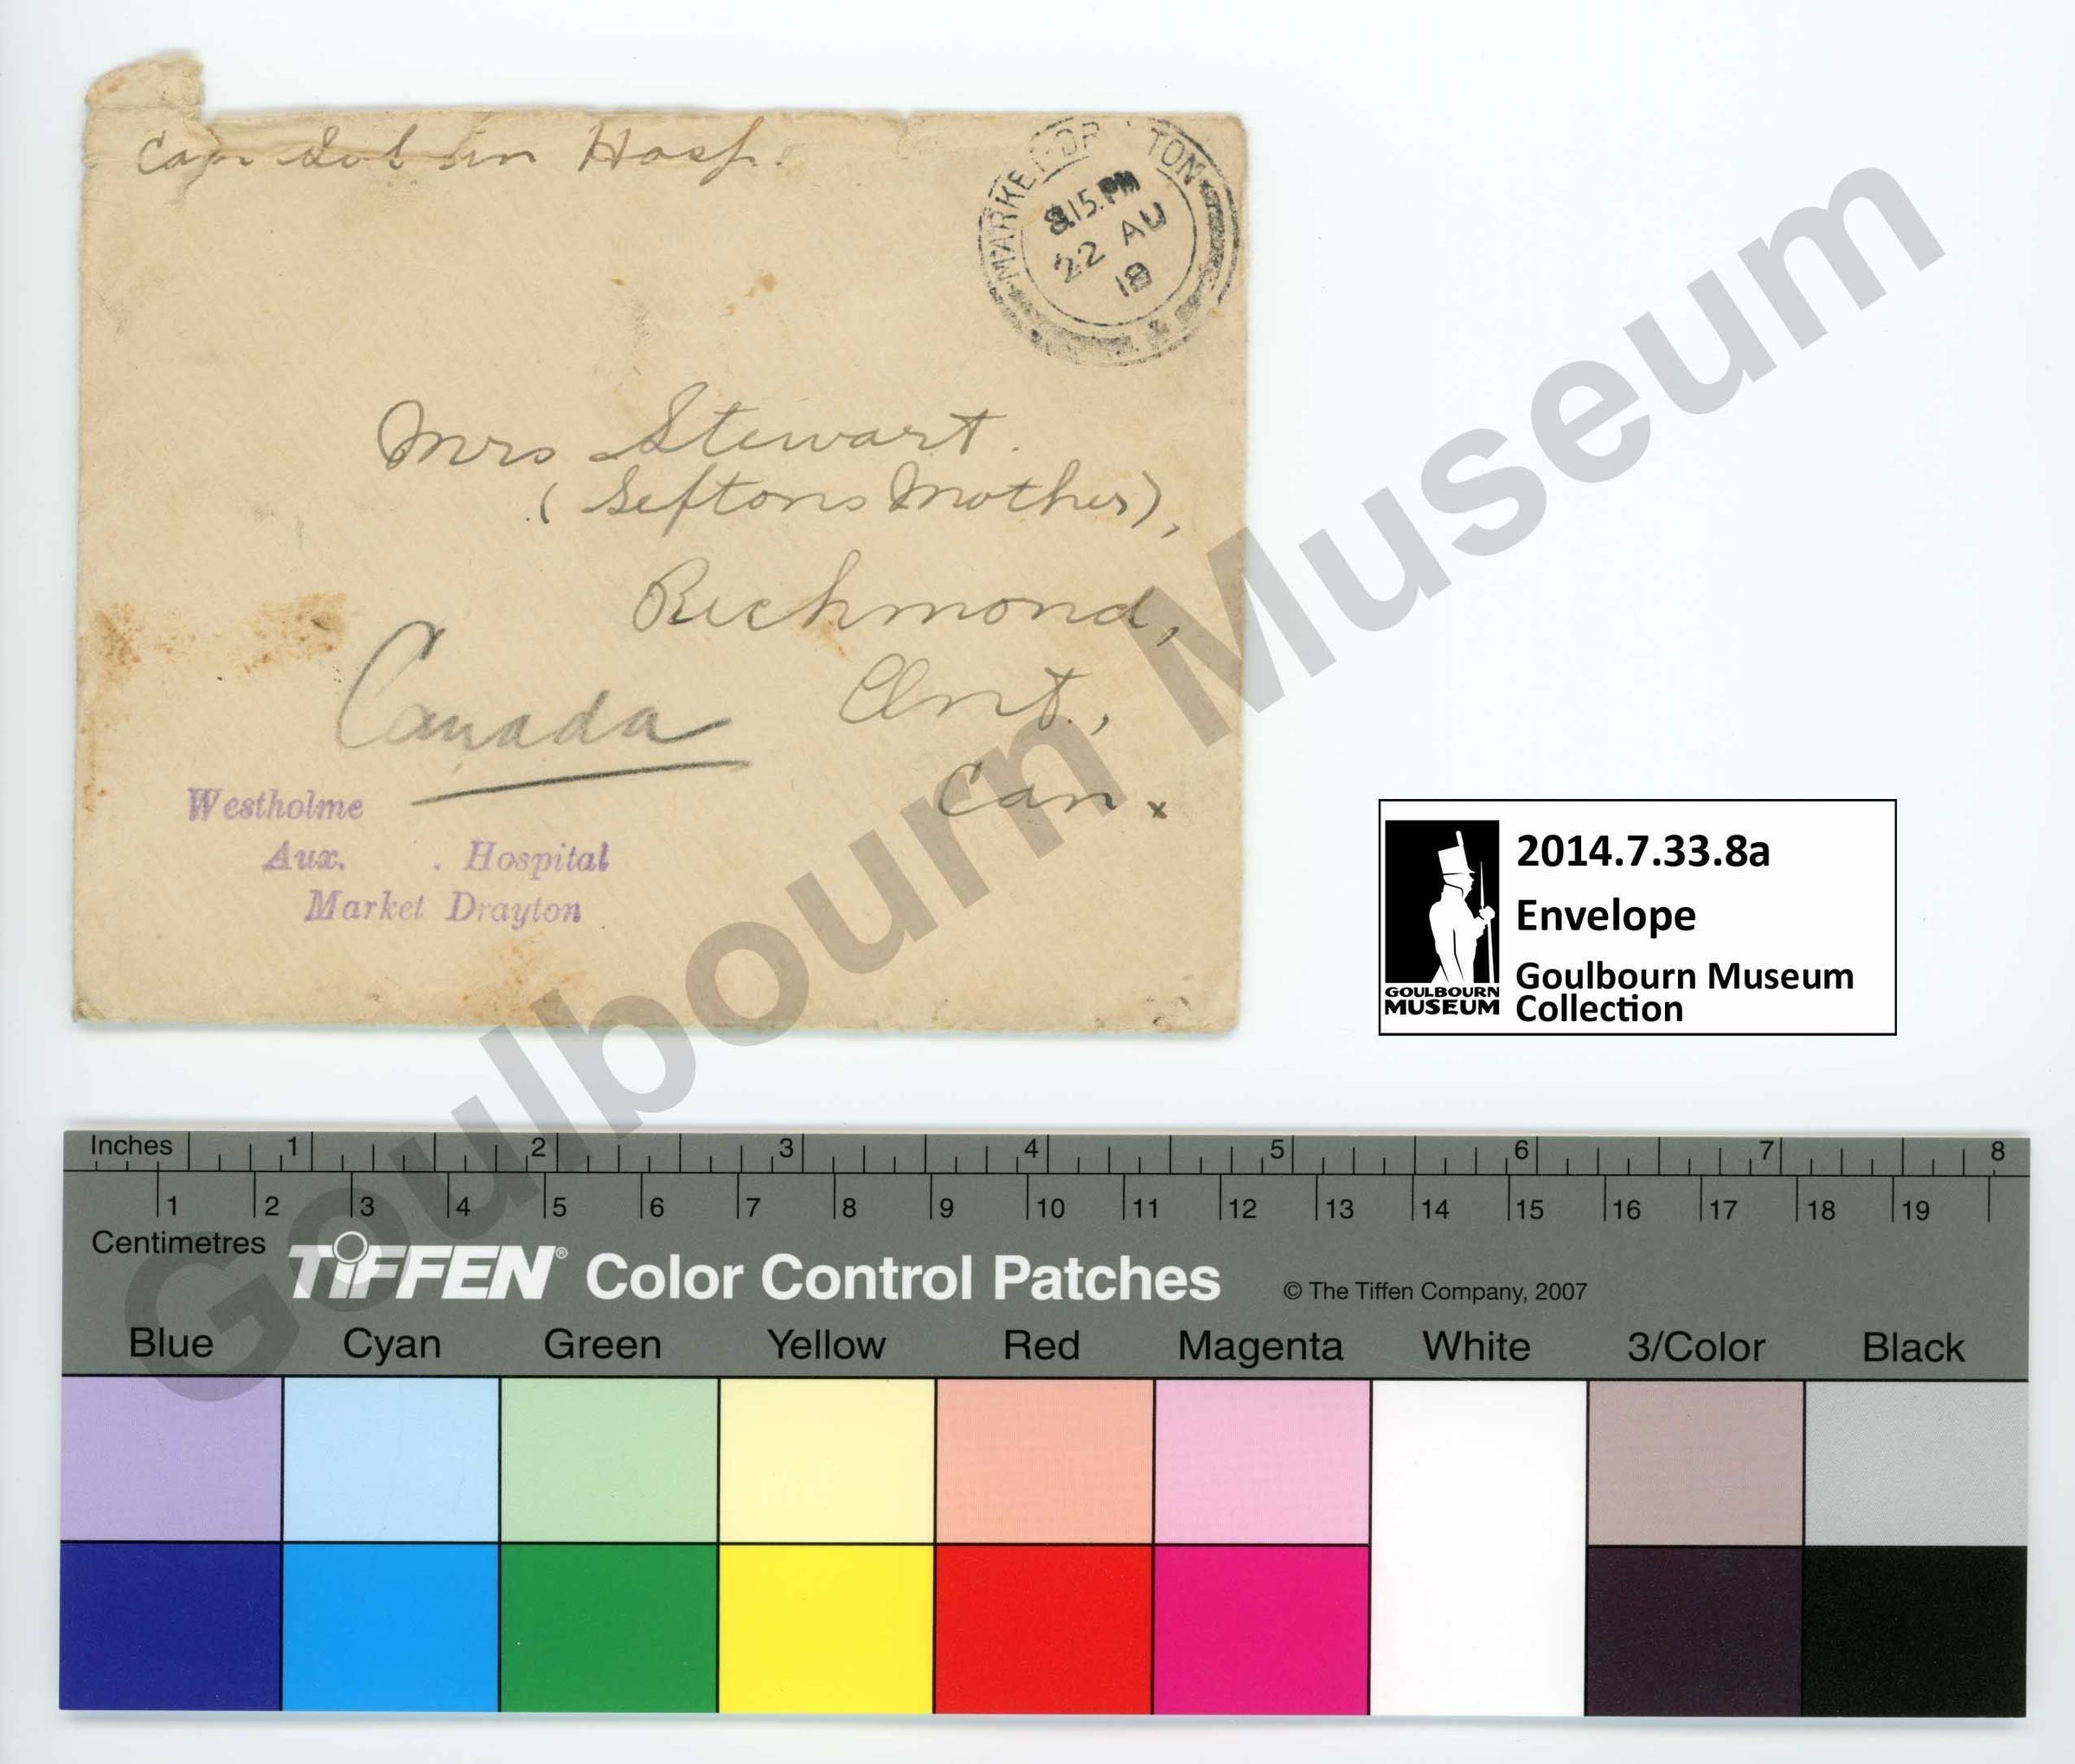 Can Sol in Hosp.
MARKET DRAYTON
8.15.PM
22 AU
18
Mrs Stewart.
(Seftons Mother),
Richmond,
Ont.,
Canada
Can.
Westholme
Aux. . Hospital
Market Drayton
Goulbourn Museum
2014.7.33.8a
Envelope
Goulbourn Museum
Collection
GOULBOURN
MUSEUM
Inches 1 2 3 4 5 6 7 8
1 2 3 4 5 6 7 8 9 10 11 12 13 14 15 16 17 18 19
Centimetres
TIFFEN® Color Control Patches © The Tiffen Company, 2007
Blue Cyan Green Yellow Red Magenta White 3/Color Black